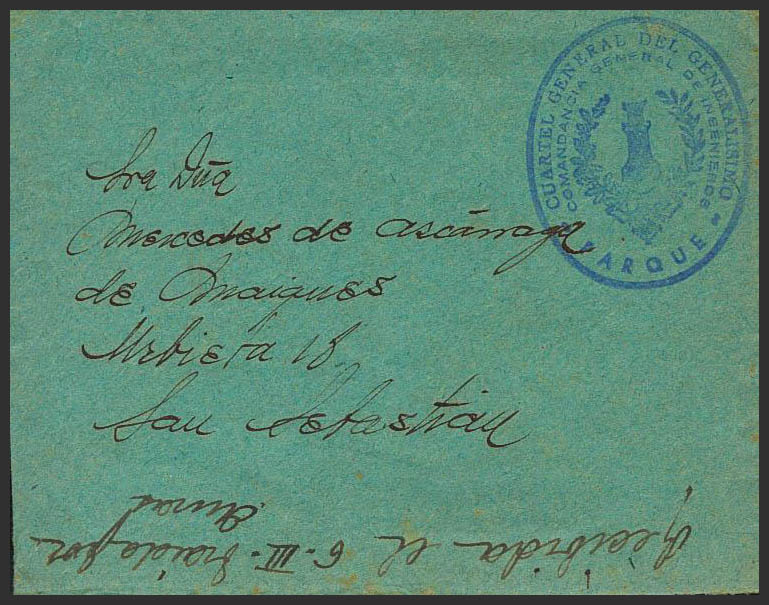 CUARTEL GENERAL DEL GENERALISIMO
COMANDANCIA GENERAL DE INGENIEROS
PARQUE
Sra Dña
Mercedes de Ascárraga
de Maigues
Urbieta 18
San Sebastián
Recibida el 6-III- traida por